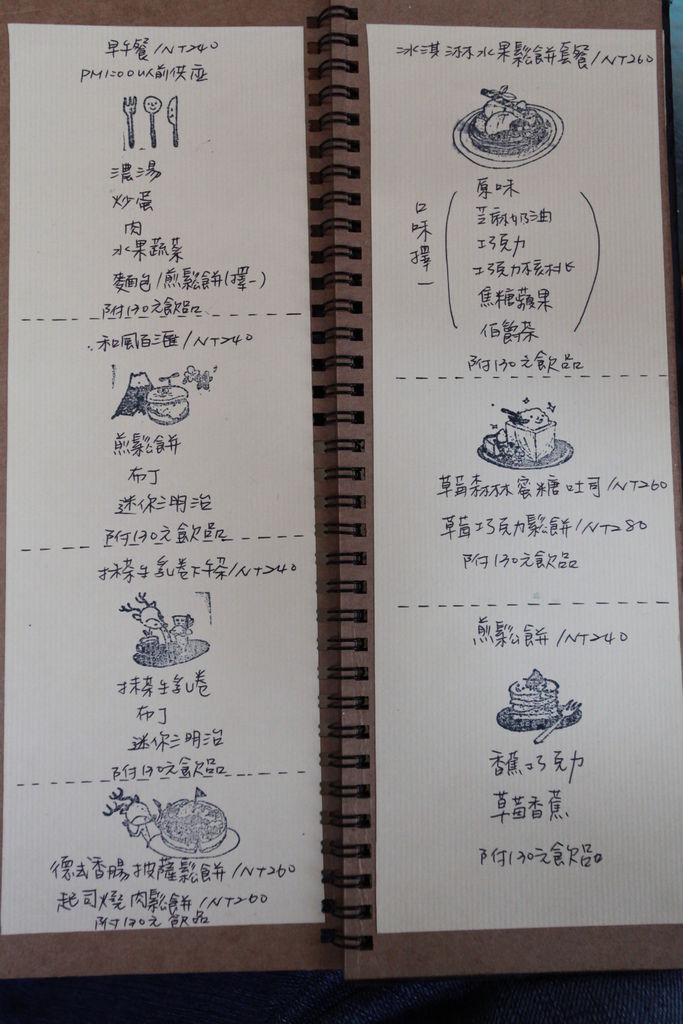 早午餐/NT240
PM1:00以前供应
濃湯
炒蛋
肉
水果蔬菜
麵包/煎鬆餅(擇一)
附130元飲品
和風百匯/NT240
煎鬆餅
布丁
迷你三明治
附130元飲品
抹茶牛乳卷下午茶/NT240
抹茶牛乳卷
布丁
迷你三明治
附130元飲品
德式香腸披薩鬆餅/NT260
起司燒肉鬆餅/NT260
附130元飲品
冰淇淋水果鬆餅套餐/NT260
口味擇一
原味
芝麻奶油
巧克力
巧克力核桃
焦糖蘋果
伯爵茶
附130元飲品
草莓森林蜜糖吐司/NT260
草莓巧克力鬆餅/NT280
附130元飲品
煎鬆餅/NT240
香蕉巧克力
草莓香蕉
附130元飲品